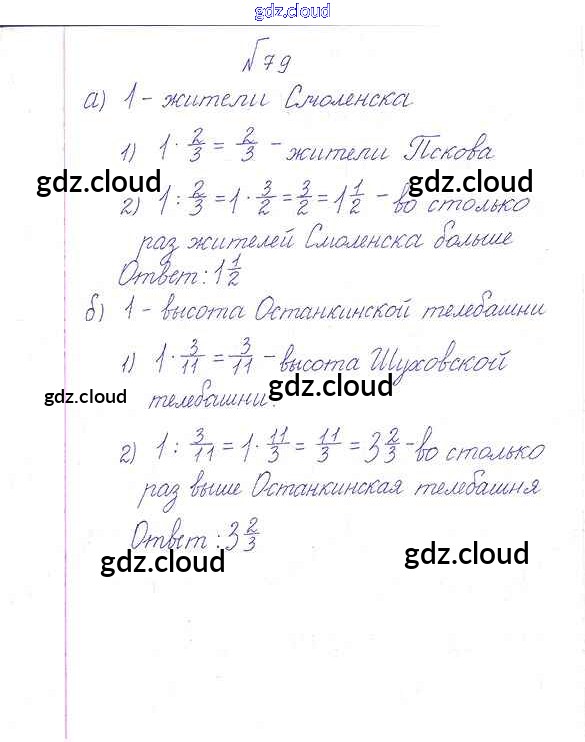 gdz.cloud
№79
а) 1 - жители Смоленска
1) 1 · 2/3 = 2/3 - жители Пскова
gdz.cloud gdz.cloud
2) 1 : 2/3 = 1 · 3/2 = 3/2 = 1 1/2 - во столько
раз жителей Смоленска больше
Ответ: 1 1/2
б) 1 - высота Останкинской телебашни
1) 1 · 3/11 = 3/11 - высота Шуховской
gdz.cloud gdz.cloud
телебашни.
2) 1 : 3/11 = 1 · 11/3 = 11/3 = 3 2/3 - во столько
раз выше Останкинская телебашня
Ответ: 3 2/3
gdz.cloud gdz.cloud